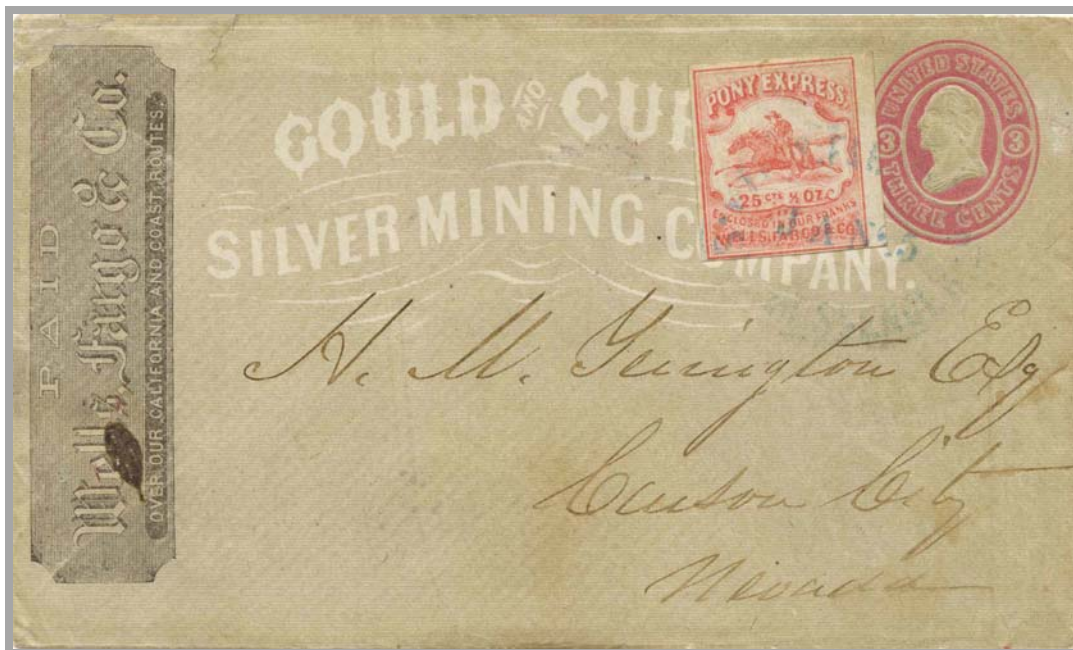 PAID
Wells, Fargo & Co.
OVER OUR CALIFORNIA AND COAST ROUTES.
GOULD AND CUR
SILVER MINING COMPANY.
PONY EXPRESS.
25 CTS ½ OZ.
ENCLOSED IN OUR FRANKS
WELLS, FARGO & CO.
UNITED STATES
3 3
THREE CENTS
JAN 5
H. M. Yerington Esq
Carson City
Nevada